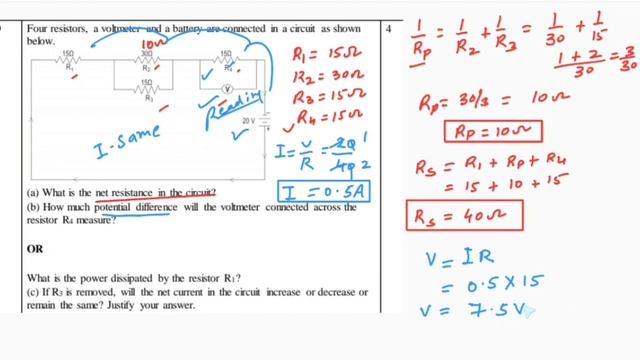 Four resistors, a voltmeter and a battery are connected in a circuit as shown
below.
4
10Ω
15Ω
30Ω
15Ω
R₁
R₂
R₄
15Ω
V
R₃
Reading
20 V
I-same
R₁ = 15Ω
R₂ = 30Ω
R₃ = 15Ω
R₄ = 15Ω
I = V/R = 20/40 1/2
I = 0.5A
(a) What is the net resistance in the circuit?
(b) How much potential difference will the voltmeter connected across the
resistor R₄ measure?
OR
What is the power dissipated by the resistor R₁?
(c) If R₃ is removed, will the net current in the circuit increase or decrease or
remain the same? Justify your answer.
1/Rp = 1/R₂ + 1/R₃ = 1/30 + 1/15
1 + 2/30 = 3/30
Rp = 30/3 = 10Ω
Rp = 10Ω
Rs = R₁ + Rp + R₄
= 15 + 10 + 15
Rs = 40Ω
V = IR
= 0.5 × 15
V = 7.5V